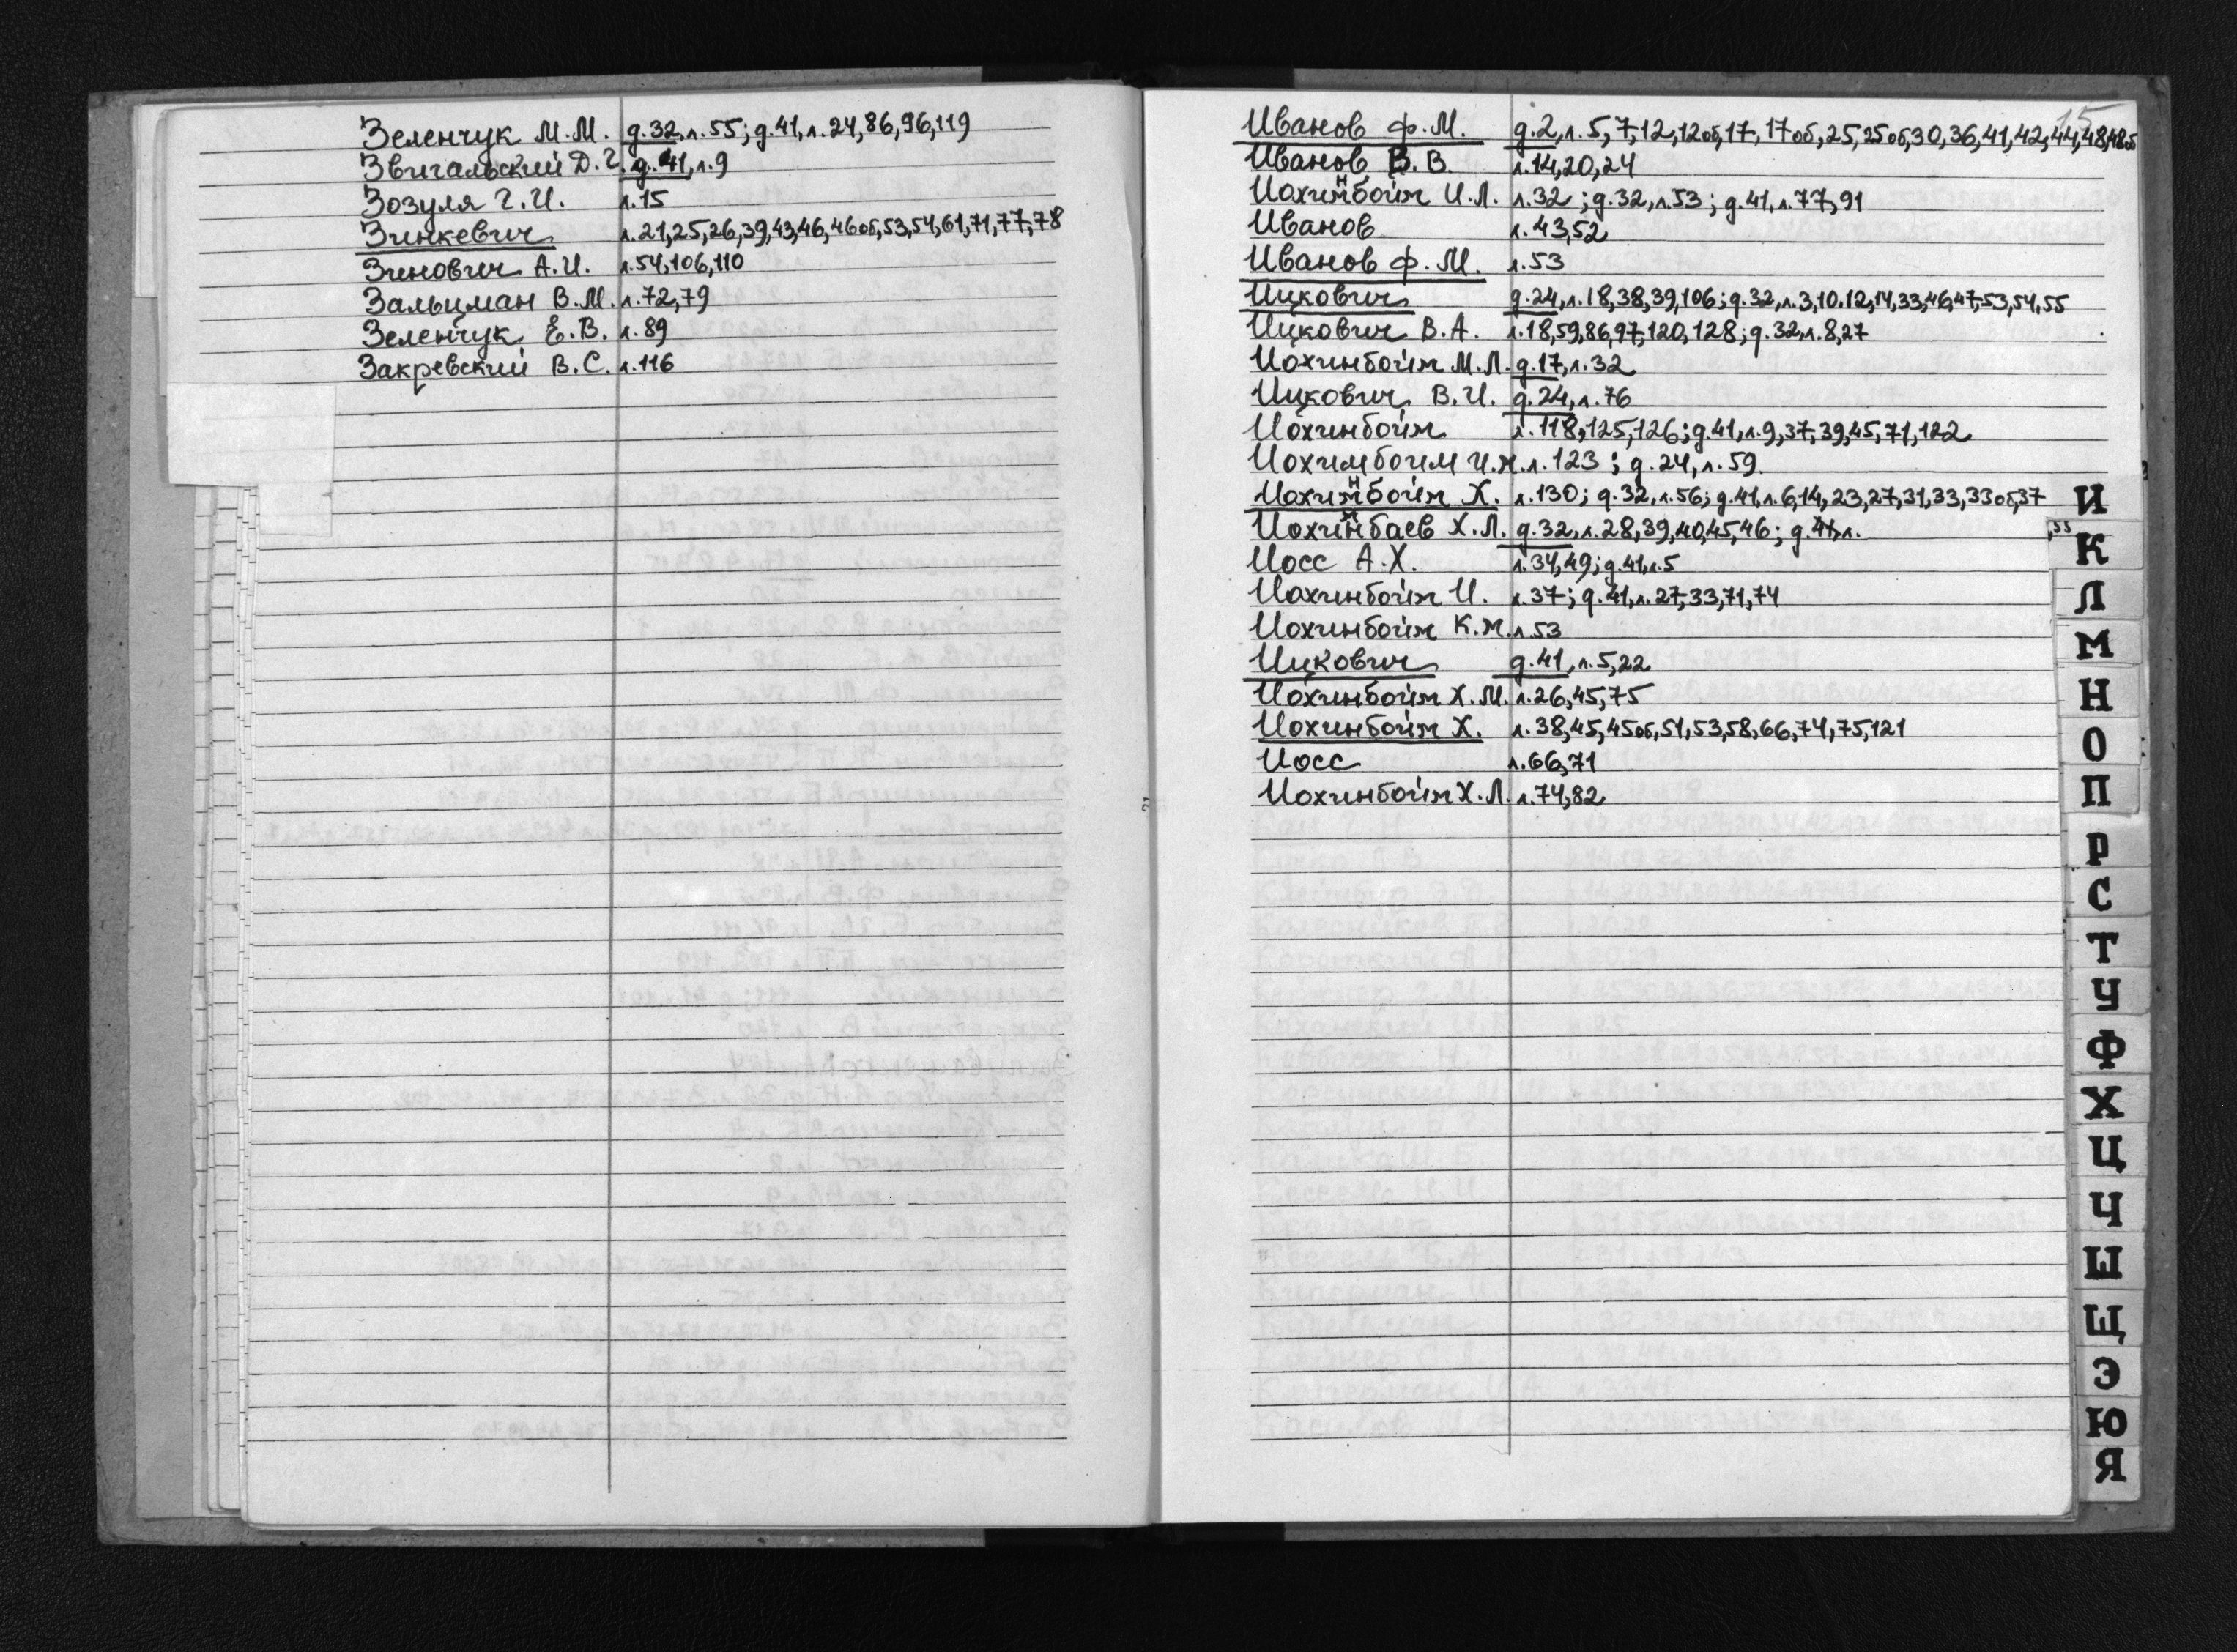 Зеленчук М.М. д.32,л.55; д.41,л.24,86,96,119
Звигальский Д.Г. д.41,л.9
Зозуля Г.И. л.15
Зинкевич л.21,25,26,39,43,46,46об,53,54,61,71,77,78
Зинович А.И. л.54,106,110
Зальцман В.М. л.72,79
Зеленчук Е.В. л.89
Закревский В.С. л.116
15
Иванов Ф.М. д.2,л.5,7,12,12об,17,17об,25,25об,30,36,41,42,44,48,48об
Иванов В.В. л.14,20,24
Иохинбойм И.Л. л.32; д.32,л.53; д.41,л.77,91
Иванов л.43,52
Иванов Ф.М. л.53
Ицкович д.24,л.18,38,39,106; д.32,л.3,10,12,14,33,46,47,53,54,55
Ицкович В.А. л.18,59,86,97,120,128; д.32,л.8,27
Иохинбойм М.Л. д.17,л.32
Ицкович В.И. д.24,л.76
Иохинбойм л.118,125,126; д.41,л.9,37,39,45,71,122
Иохимбоим И.М. л.123; д.24,л.59
Иохинбойм Х. л.130; д.32,л.56; д.41,л.6,14,23,27,31,33,33об,37
,55
Иохимбаев Х.Л. д.32,л.28,39,40,45,46; д.41,л.
Иосс А.Х. л.34,49; д.41,л.5
Иохинбойм И. л.37; д.41,л.27,33,71,74
Иохинбойм К.М. л.53
Ицкович д.41,л.5,22
Иохинбойм Х.М. л.26,45,75
Иохинбойм Х. л.38,45,45об,51,53,58,66,74,75,121
Иосс л.66,71
Иохинбойм Х.Л. л.74,82
И
К
Л
М
Н
О
П
Р
С
Т
У
Ф
Х
Ц
Ч
Ш
Щ
Э
Ю
Я